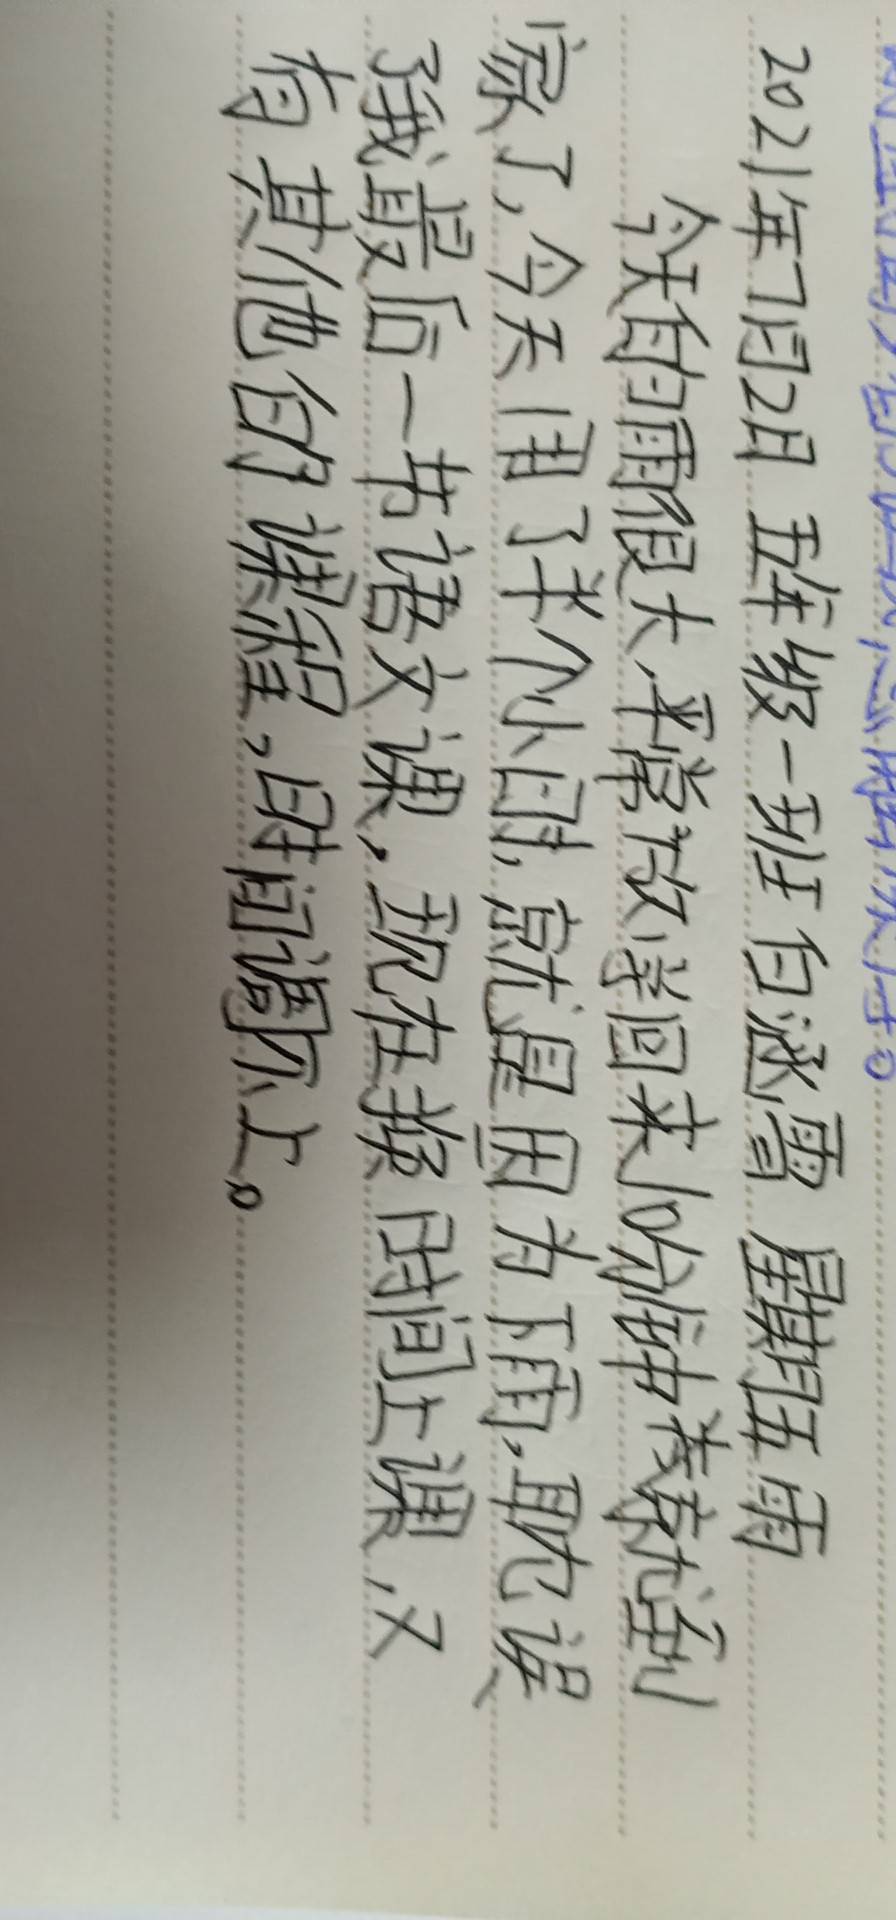 2021年7月2日 五年级一班 白涵雪 星期五 雨
今天的雨很大,平常放学回来10分钟左就到
家了,今天用了半个小时,就是因为下雨,耽误
了我最后一节语文课,现在按时间上课,又
有其他的课程,时间调不上。